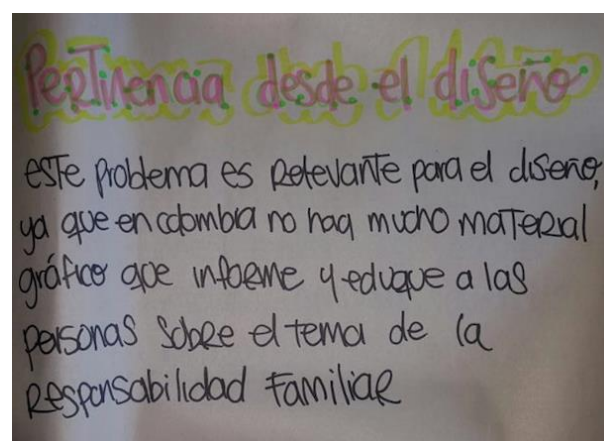 Pertinencia desde el diseño
este problema es relevante para el diseño,
ya que en colombia no hay mucho material
gráfico que informe y eduque a las
personas sobre el tema de la
responsabilidad familiar